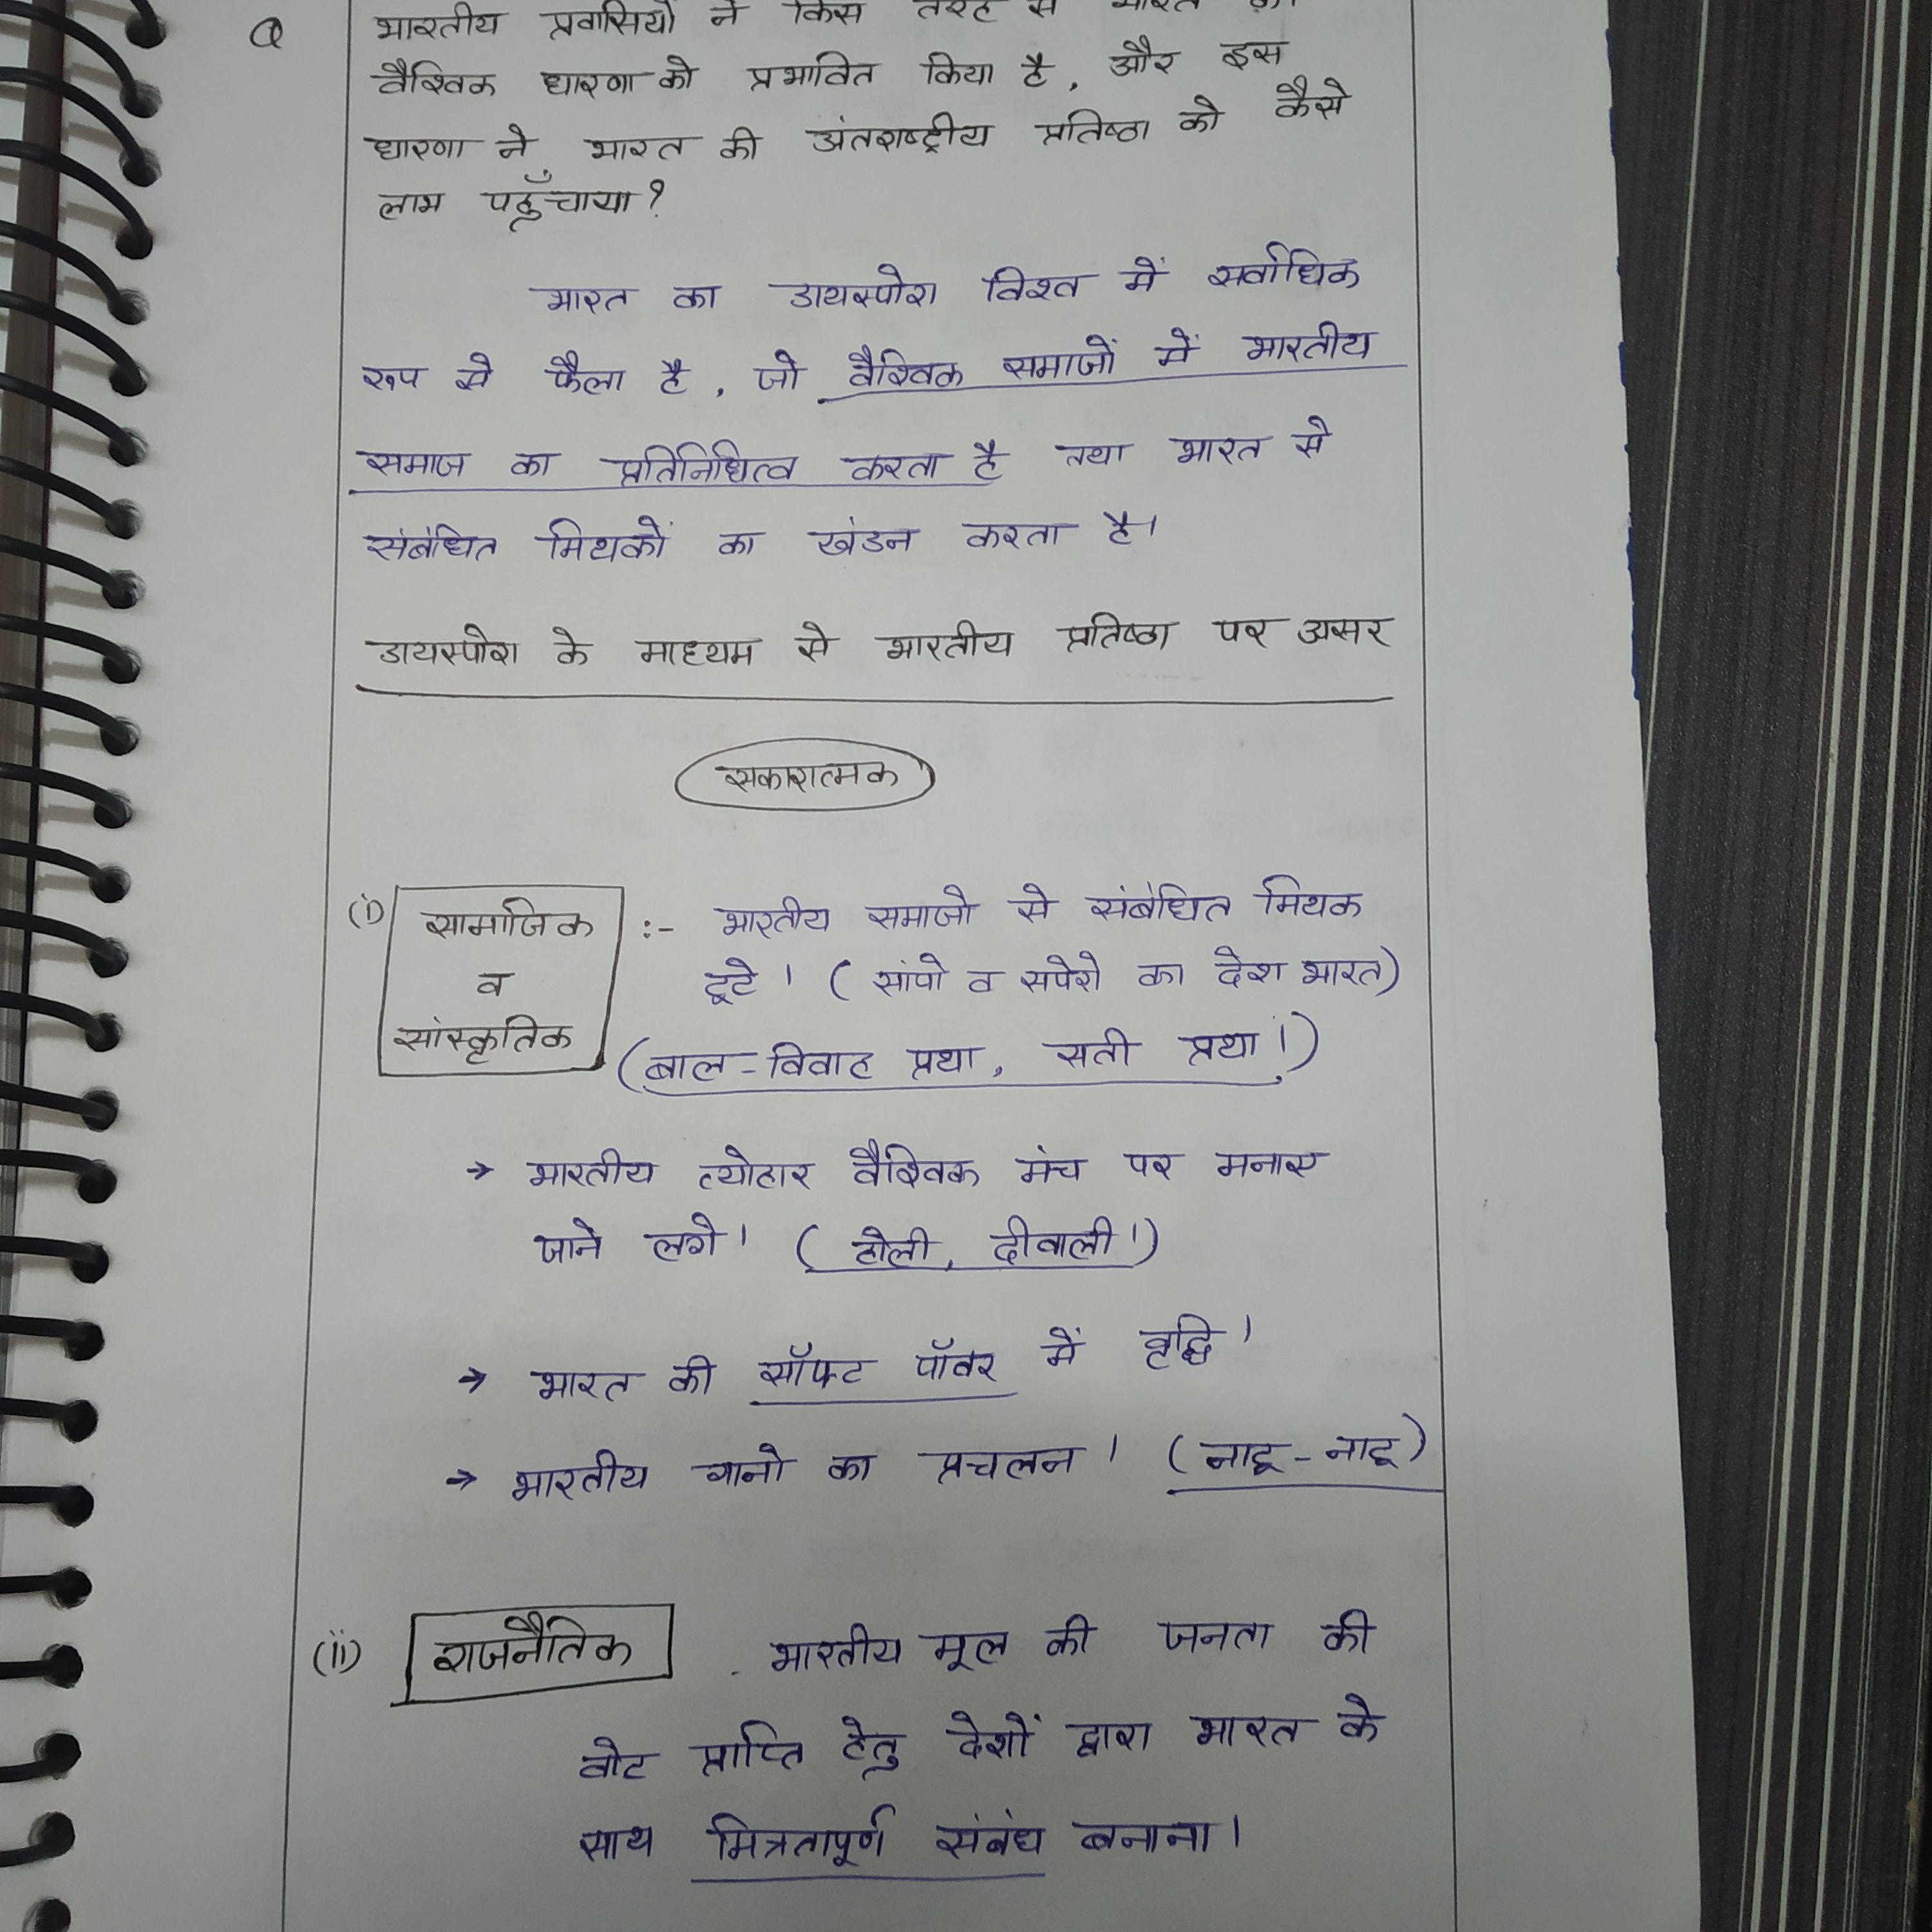 Q भारतीय प्रवासियों ने किस तरह से भारत की
वैश्विक धारणा को प्रभावित किया है, और इस
धारणा ने भारत की अंतराष्ट्रीय प्रतिष्ठा को कैसे
लाभ पहुँचाया?
भारत का डायस्पोरा विश्व में सर्वाधिक
रूप से फैला है, जो वैश्विक समाजों में भारतीय
समाज का प्रतिनिधित्व करता है तथा भारत से
संबंधित मिथकों का खंडन करता है।
डायस्पोरा के माध्यम से भारतीय प्रतिष्ठा पर असर
सकारात्मक
(i) सामाजिक व सांस्कृतिक :- भारतीय समाजो से संबंधित मिथक
टूटे। (सांपो व सपेरो का देश भारत)
(बाल-विवाह प्रथा, सती प्रथा।)
→ भारतीय त्योहार वैश्विक मंच पर मनाए
जाने लगे। (होली, दीवाली।)
→ भारत की सॉफ्ट पॉवर में वृद्धि।
→ भारतीय गानो का प्रचलन। (नाटू-नाटू)
(ii) राजनैतिक . भारतीय मूल की जनता की
वोट प्राप्ति हेतु देशों द्वारा भारत के
साथ मित्रतापूर्ण संबंध बनाना।